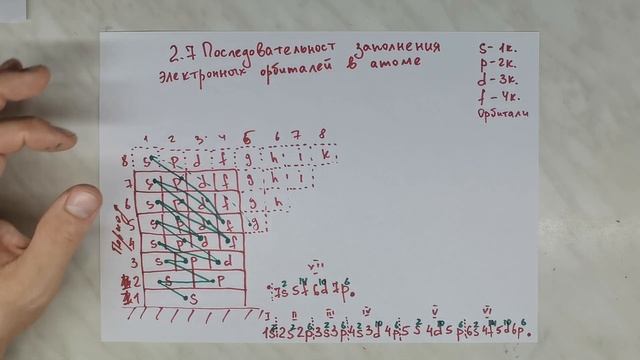 2.7 Последовательност заполнения
электронных орбиталей в атоме
s - 1к.
p - 2к.
d - 3к.
f - 4к.
Орбитали
1 2 3 4 5 6 7 8
8 s p d f g h i k
7 s p d f g h i
6 s p d f g h
5 s p d f g
4 s p d f
3 s p d
2 s p
1 s
Период
VII
7s² 5f¹⁴ 6d¹⁰ 7p⁶.
I II III IV V VI
1s² 2s² 2p⁶ 3s² 3p⁶ 4s² 3d¹⁰ 4p⁶ 5s² 4d¹⁰ 5p⁶ 6s² 4f¹⁴ 5d¹⁰ 6p⁶.